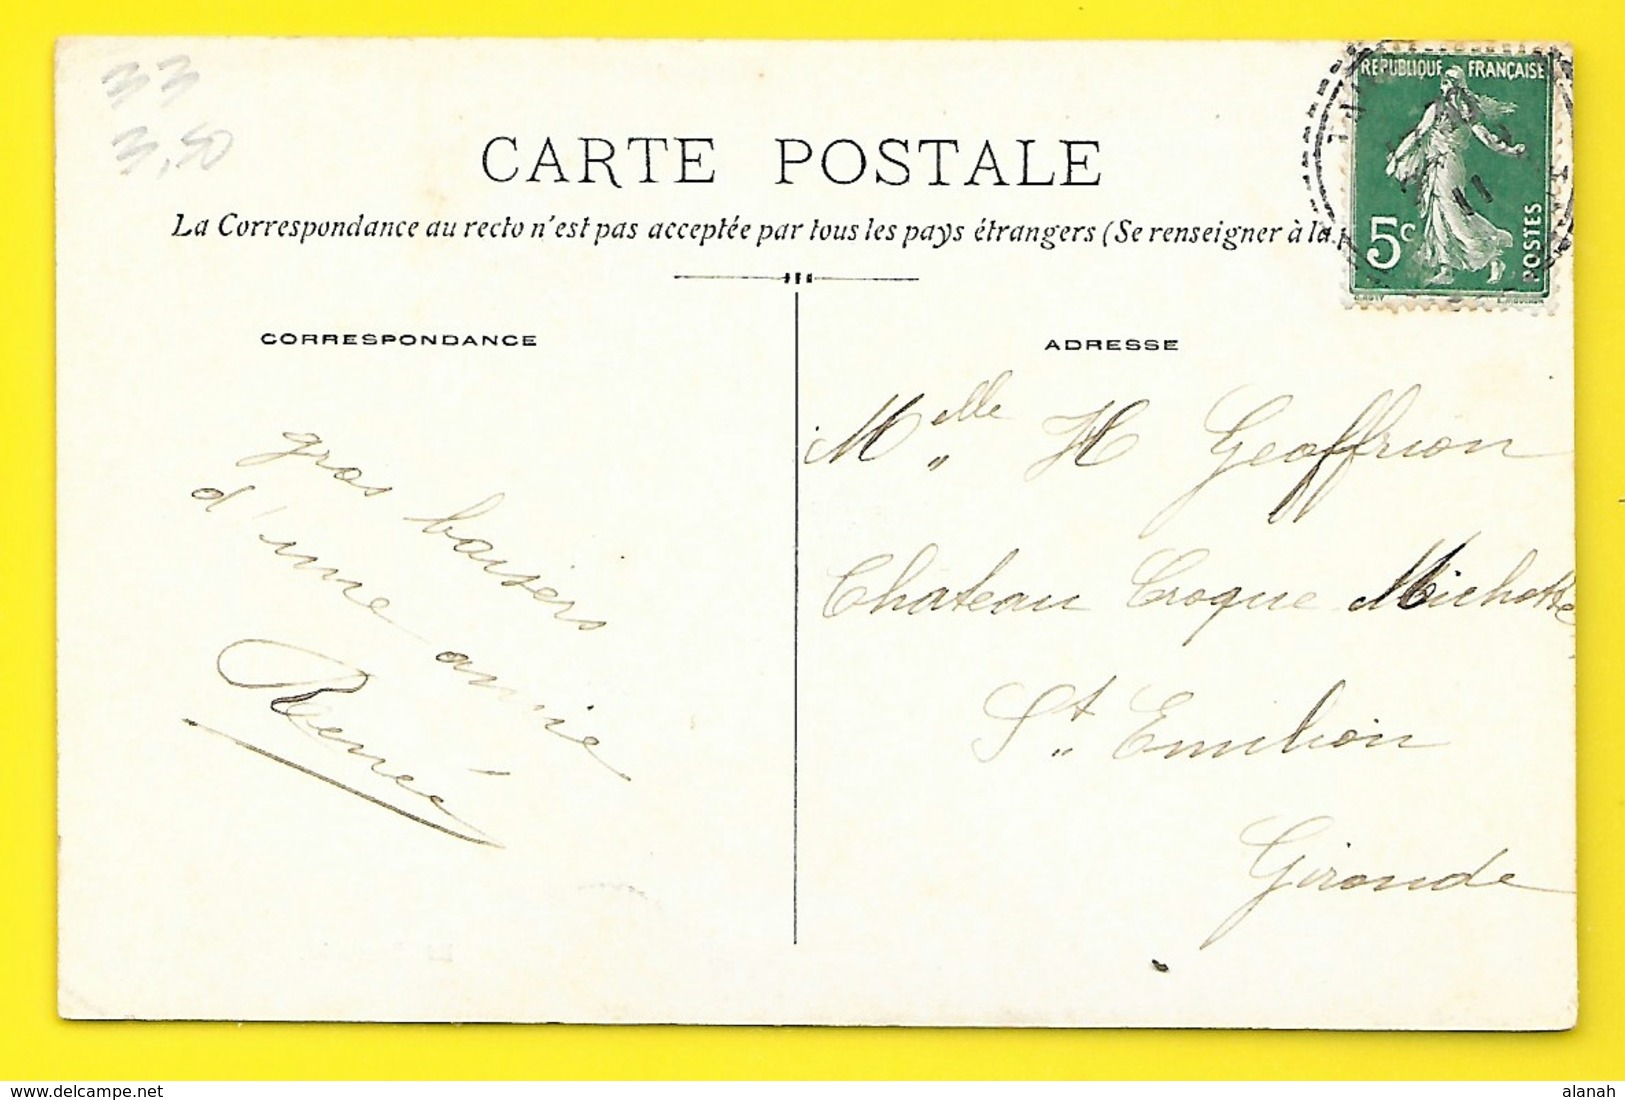 33
3,50
CARTE POSTALE
La Correspondance au recto n'est pas acceptée par tous les pays étrangers (Se renseigner à la
REPUBLIQUE FRANÇAISE
5c
POSTES
11
CORRESPONDANCE
gros baisers
d'une amie
Renée
ADRESSE
Melle H Geoffrion
Chateau Croque Michotte
St Emilion
Gironde
www.delcampe.net
alanah